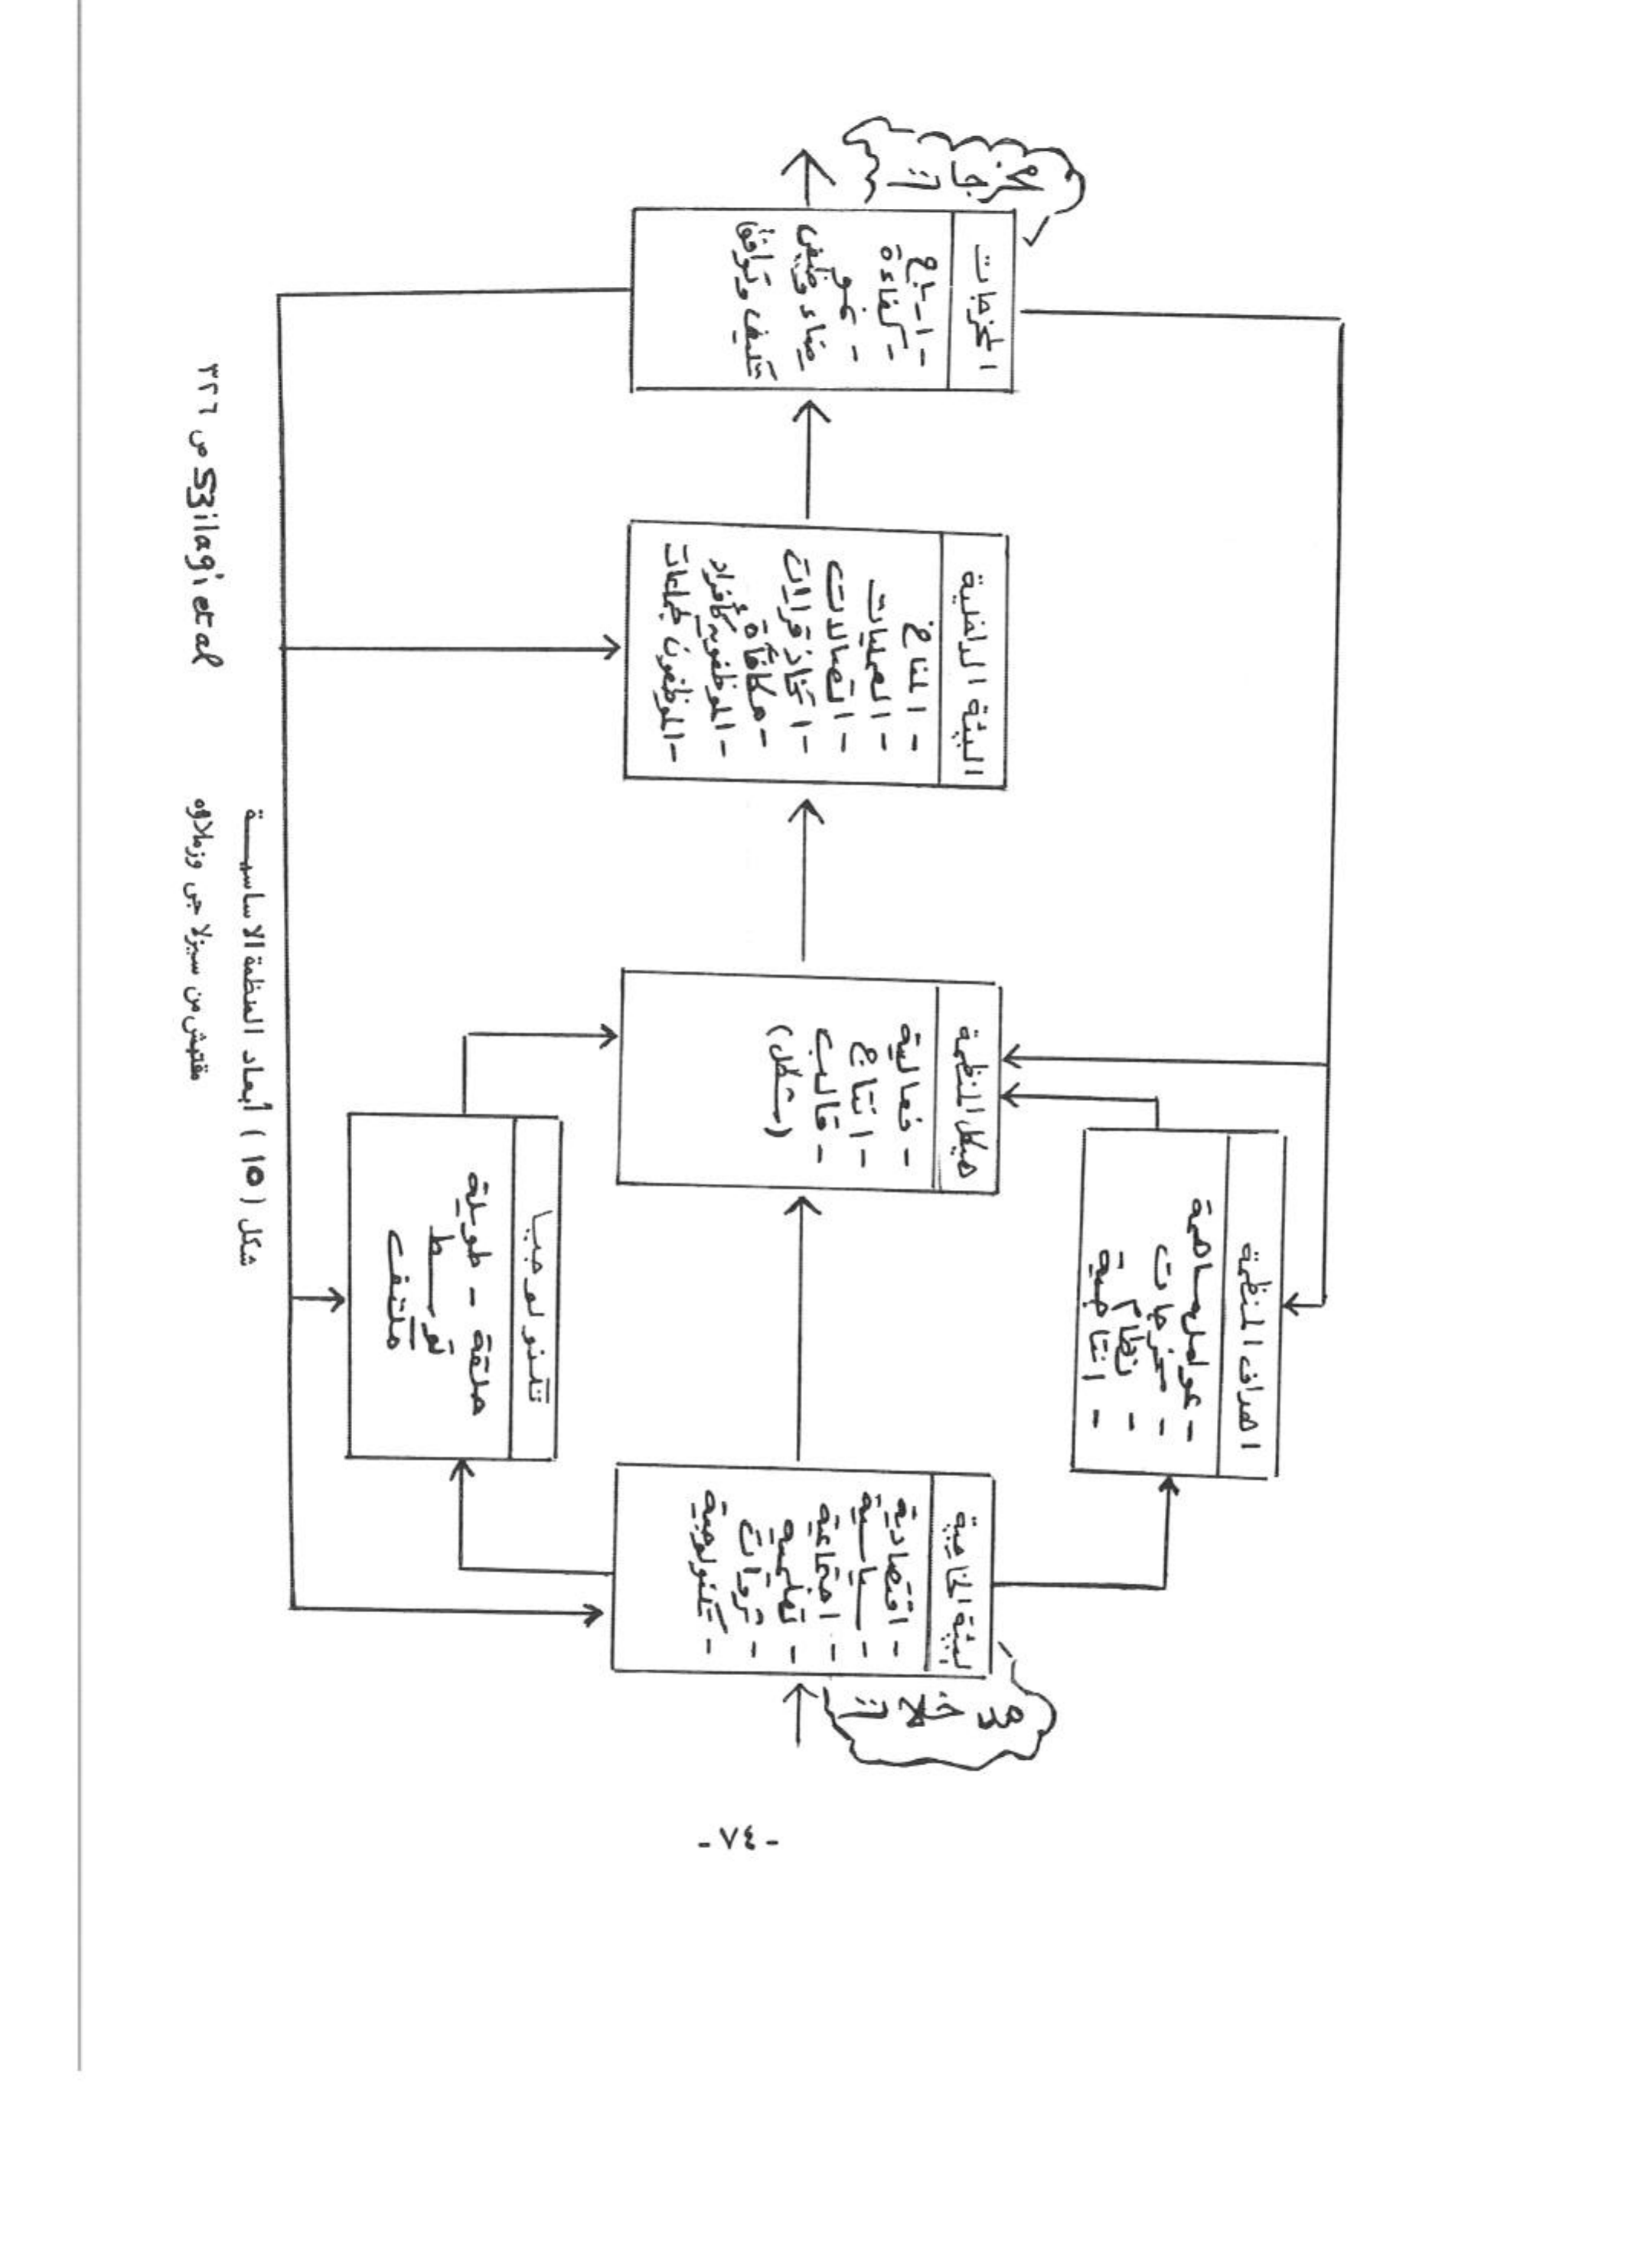 مدخلات
البيئة الخارجية
- اقتصادية
- سياسية
- اجتماعية
- تعليمية
- ثروات
- تكنولوجية
اهداف المنظمة
- مخرجات
- نظام
- انتاجية
تكنولوجيا
حلقة - طويلة
توسط
ملتف
هيكل المنظمة
- فعالية
- انتاج
- قالب
(شكل)
البيئة الداخلية
- المناخ
- العمليات
- اتصالات
- اتخاذ قرارات
- مكافأة
- الموظفون كأفراد
- الموظفون جماعات
المخرجات
- كفاءة
- نمو
رضاء وظيفي
تكيف وتوافق
مخرجات
شكل (١٥) أبعاد المنظمة الاساسية
مقتبش من سيزلاجى وزملاؤه
Szilagi et al ص ٣٢٦
- ٧٤ -